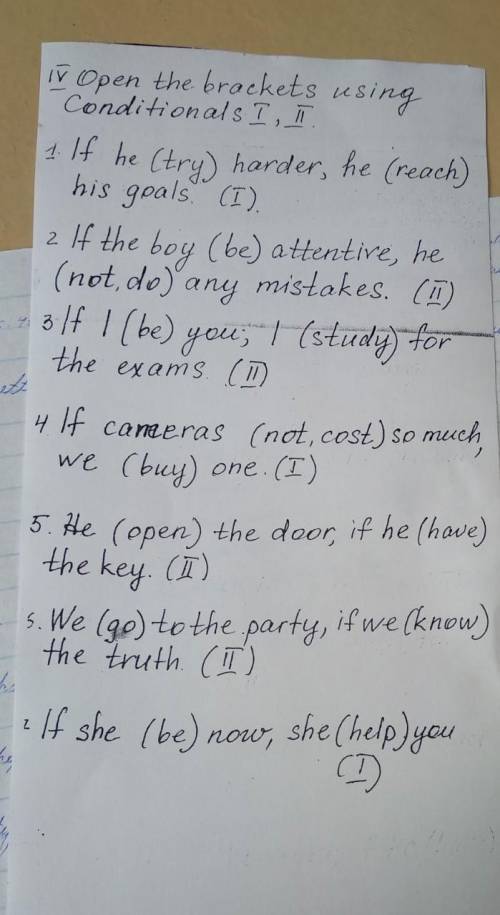 IV Open the brackets using
Conditionals I, II.
1. If he (try) harder, he (reach)
his goals. (I).
2 If the boy (be) attentive, he
(not, do) any mistakes. (II)
3 If I (be) you, I (study) for
the exams. (II)
4. If cameras (not, cost) so much,
we (buy) one. (I)
5. He (open) the door, if he (have)
the key. (II)
5. We (go) to the party, if we (know)
the truth. (II)
2 If she (be) now, she (help) you
(I)